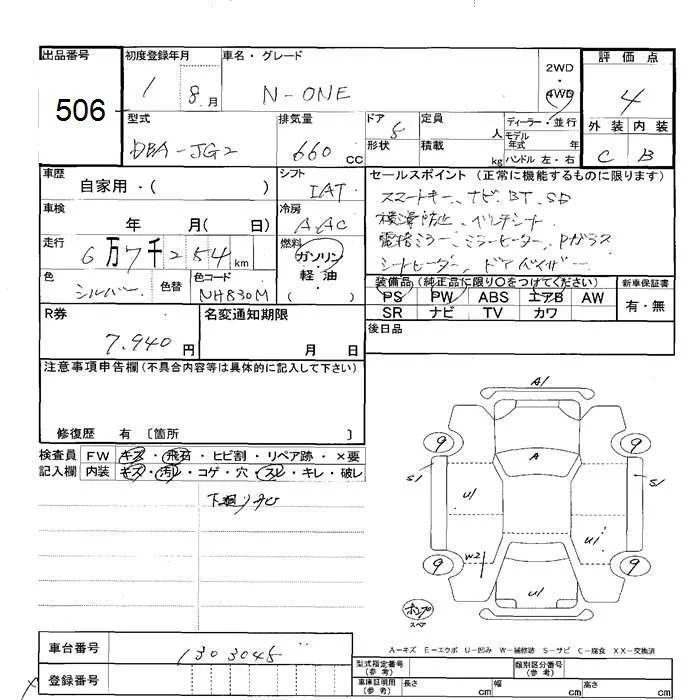 出品番号
506
初度登録年月
1 8月
車名・グレード
N-ONE
2WD
・
4WD
評価点
4
外装 内装
C B
型式
DBA-JG2
排気量
660 CC
ドア 5
形状
定員 人
積載 kg
ディーラー・並行
モデル
年式 年
ハンドル 左・右
車歴
自家用・( )
シフト
IAT
車検
年 月( 日)
冷房
AAC
走行
6万7千254km
燃料
ガソリン・
軽油
( )
色
シルバー
色替
色コード
NH830M
セールスポイント(正常に機能するものに限ります)
スマートキー、ナビ、BT、SD
横滑防止、
電格ミラー、ミラーヒーター、Pガラス
シートヒーター、ドアバイザー
装備品(純正品に限り〇をつけてください)
PS PW ABS エアB AW
SR ナビ TV カワ
新車保証書
有・無
後日品
R券
7.940円
名変通知期限
月 日
注意事項申告欄(不具合内容等は具体的に記入して下さい)
修復歴 有 〔箇所 〕
検査員
記入欄
FW キズ・飛石・ヒビ割・リペア跡・×要
内装 キズ・汚れ・コゲ・穴・スレ・キレ・破レ
下廻りサビ
A1
9 9
A
S1 S1
U1
U1
W2
9 9
U1
ポンプ
スペア
A-キズ E-エクボ U-凹み W-補修跡 S-サビ C-腐食 XX-交換済
車台番号
1303045
登録番号
型式指定番号
(参考)
類別区分番号
(参考)
車庫証明用
(参考)
長さ cm 幅 cm 高さ cm